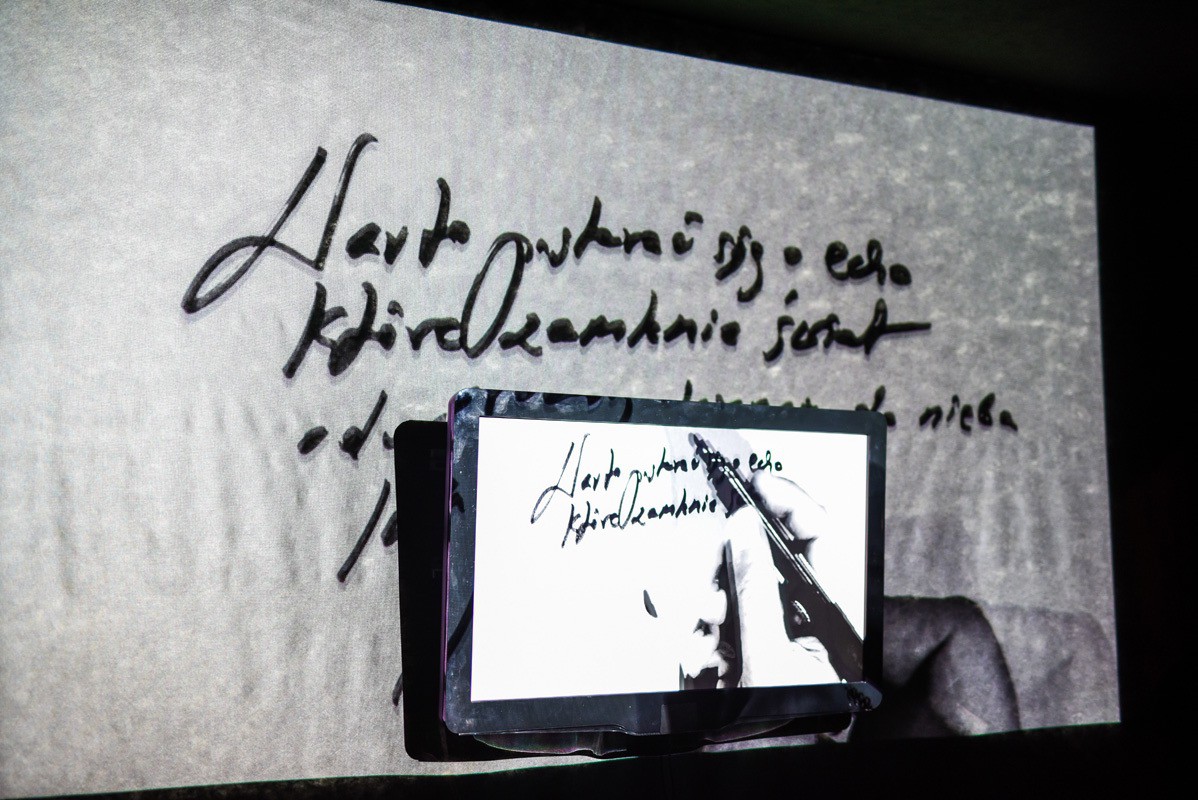 Warto postarać się o echo
które zamknie świat
do nieba
Warto postarać o echo
które zamknie